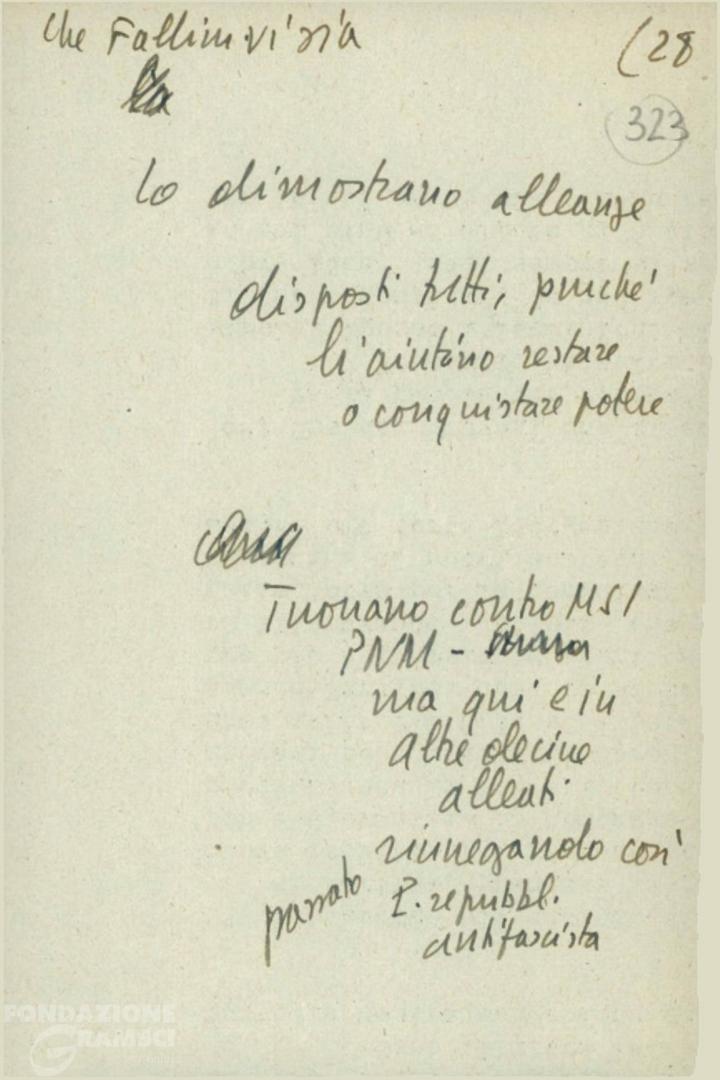 che Fallim. vi sia
(28
323
lo dimostrano alleanze
disposti tutti, purché
li aiutino restare
o conquistare potere
Tuonano contro MSI
PNM -
ma qui e in
altre decine
alleati
rinnegando così
passato P. repubbl.
antifascista
FONDAZIONE
GRAMSCI